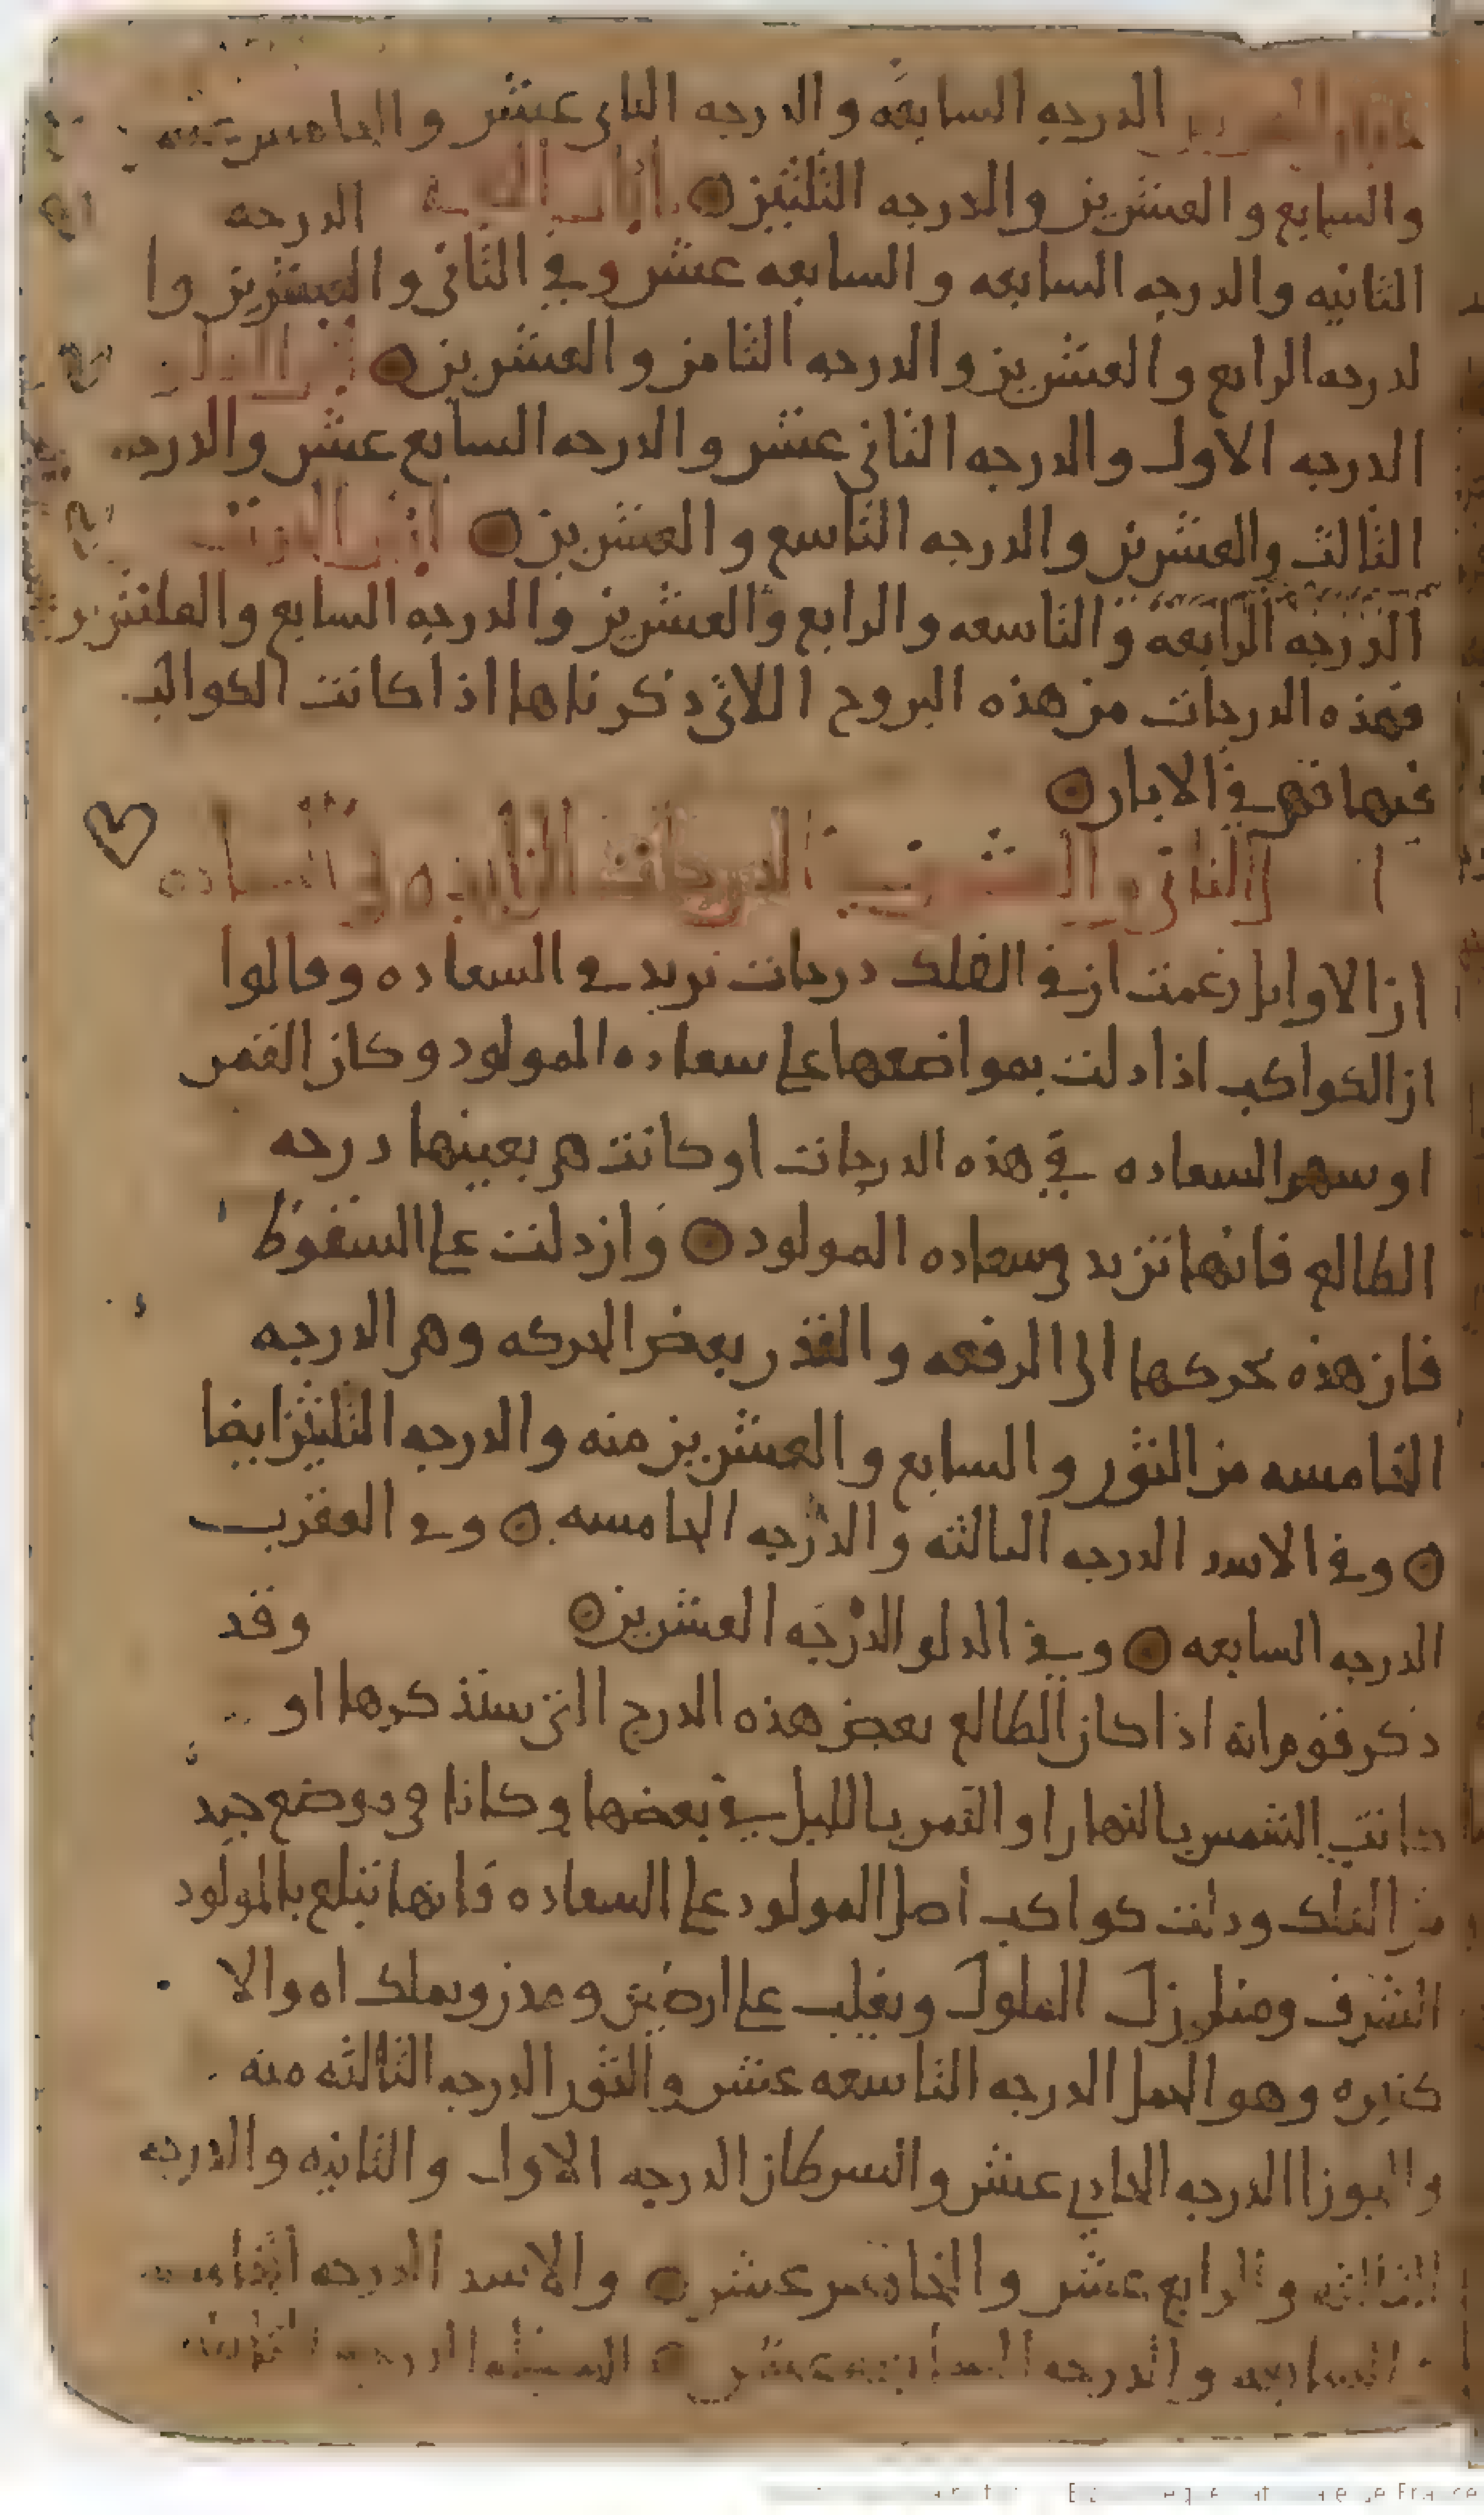 الدرجه السابعه والدرجه الثانى عشر والخامس
والسابع والعشرين والدرجه الثلثين ابار الدرجه
الثانيه والدرجه السابعه والسابعه عشر وفى الثانى والعشرين وا
لدرجه الرابع والعشرين والدرجه الثامن والعشرين
الدرجه الاول والدرجه الثانى عشر والدرجه السابع عشر والدرجه
الثالث والعشرين والدرجه التاسع والعشرين
الدرجه الرابعه والتاسعه والرابع والعشرين والدرجه السابع والعشرين
فهذه الدرجات من هذه البروج اللاتى ذكرناها اذا كانت الكواكب
فيها فهى فى الابار
الثانى والعشرين الدرجات الزايده فى السعاده
ان الاوايل زعمت ان فى الفلك درجات تزيد فى السعاده وقالوا
ان الكواكب اذا دلت بمواضعها على سعاده المولود وكان القمر
او سهم السعاده فى هذه الدرجات او كانت هى بعينها درجه
الطالع فانها تزيد فى سعاده المولود وان دلت على السقوط
فان هذه تحركها الى الرفعه والقدر بعض الحركه وهى الدرجه
الخامسه من الثور والسابع والعشرين منه والدرجه الثلثين ايضا
وفى الاسد الدرجه الثالثه والدرجه الخامسه وفى العقرب
الدرجه السابعه وفى الدلو الدرجه العشرين وقد
ذكر قوم انه اذا كان الطالع بعض هذه الدرج التى سنذكرها او
كانت الشمس بالنهار او القمر بالليل فى بعضها وكانا فى موضع جيد
من الفلك ودلت كواكب اصل المولود على السعاده فانها تبلغ بالمولود
الشرف ومنازل الملوك ويغلب على ارضين ومدن ويملك اموالا
كثيره وهو الحمل الدرجه التاسعه عشر والثور الدرجه الثالثه منه
والجوزا الدرجه الحادى عشر والسرطان الدرجه الاول والثانيه والدرجه
الثالثه والرابع عشر والخامس عشر والاسد الدرجه
السابعه والدرجه السابعه عشر السنبله الدرجه